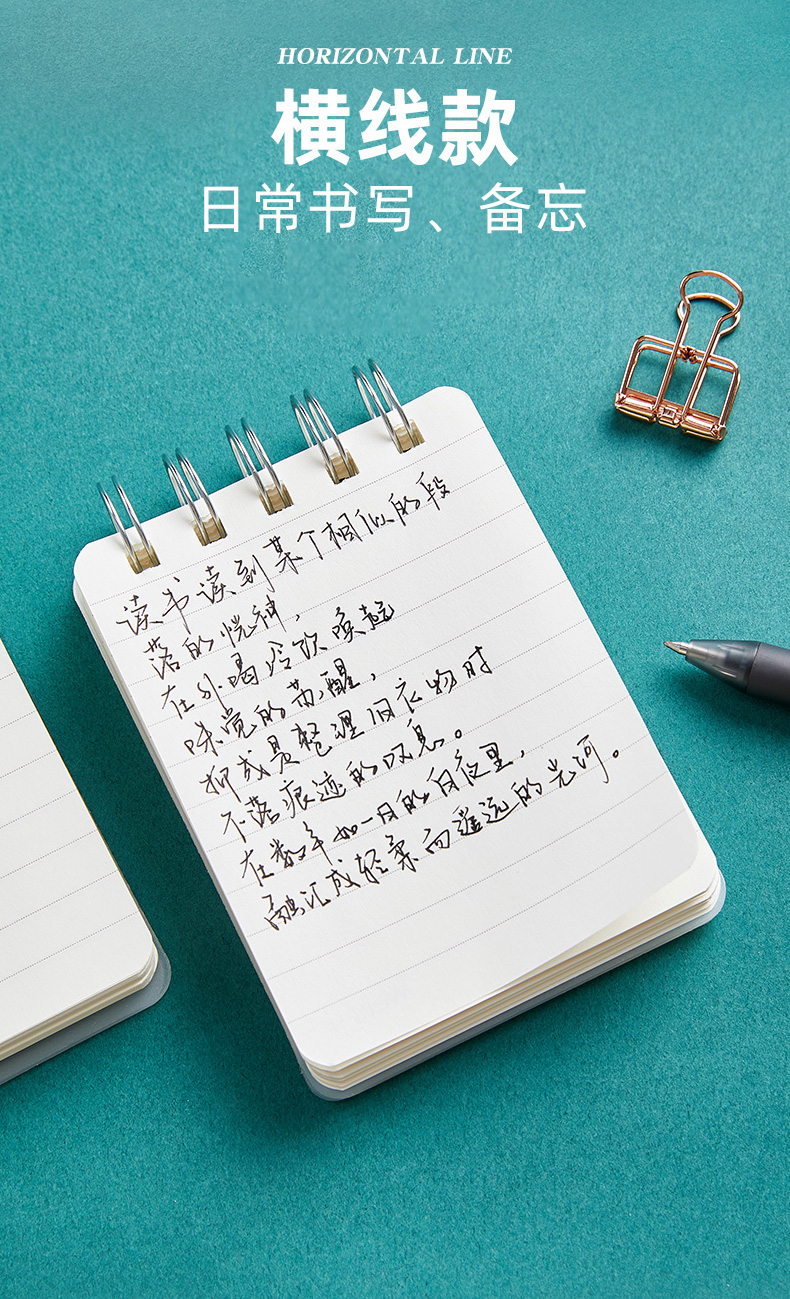 HORIZONTAL LINE
横线款
日常书写、备忘
读书读到某个相似的段
落的恍神，
在外喝冷饮唤起
味觉的苏醒，
抑或是整理旧衣物时
不落痕迹的叹息。
在数年如一日的白夜里，
融汇成轻柔而遥远的光河。